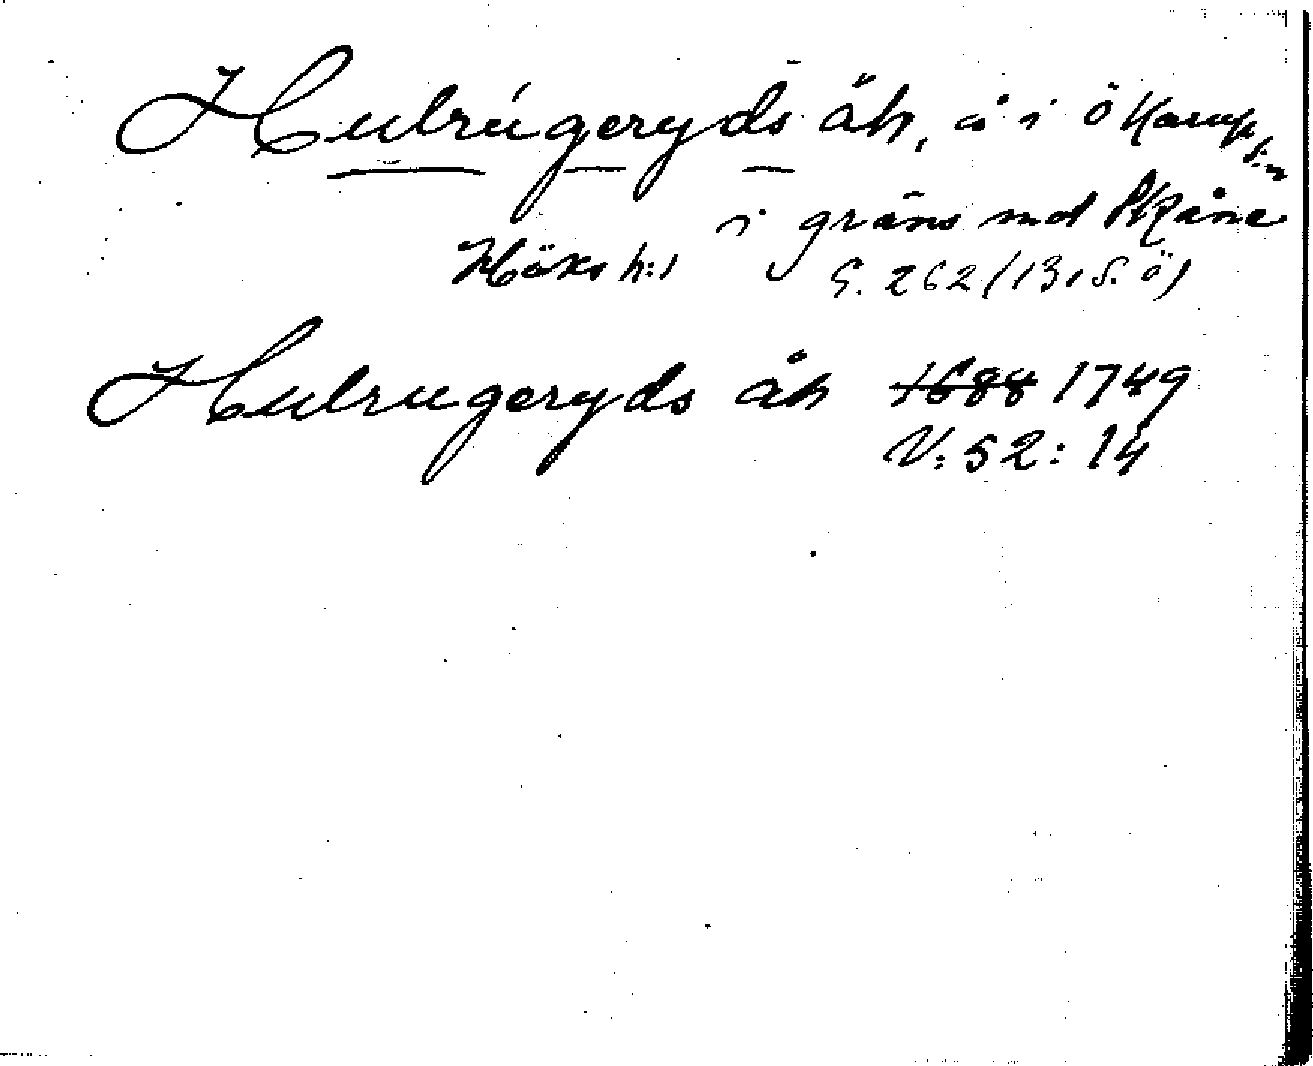 Hulrúgeryds åh, å i Ö Karup s:n
i gräns md Skåne
Höks h:d G. 262 (13, S. ö)
Hulrugeryds åh 1688 1749
V: 52: 14